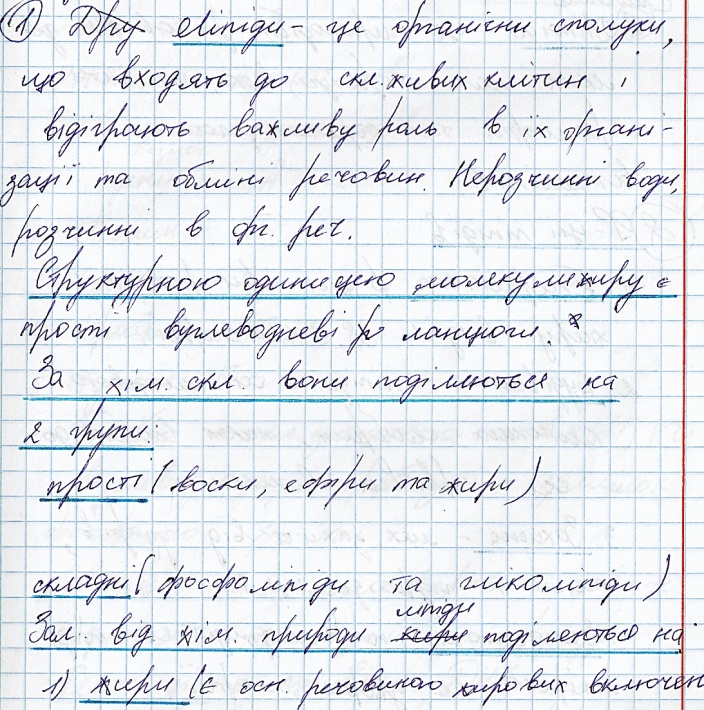 1) Дру Ліпіди – це органічни сполуки,
що входять до скл. живих клітин і
відіграють важливу роль в їх органі-
зації та обміні речовин. Нерозчинні воді,
розчинні в ор. реч.
Структурною одиницею молекули жиру є
прості вуглеводневі ланцюги.
За хім. скл. вони поділяються на
2 групи:
прості (воски, ефіри та жири)
складні (фосфоліпіди та гліколіпіди)
ліпіди
Зал. від хім. природи жири поділяються на
1) жири (є осн. речовиною жирових включен